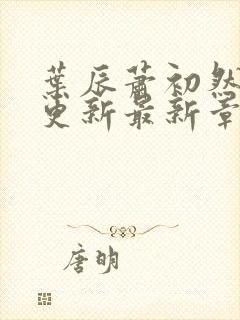 葉辰蕭初然
更新最新章
唐明